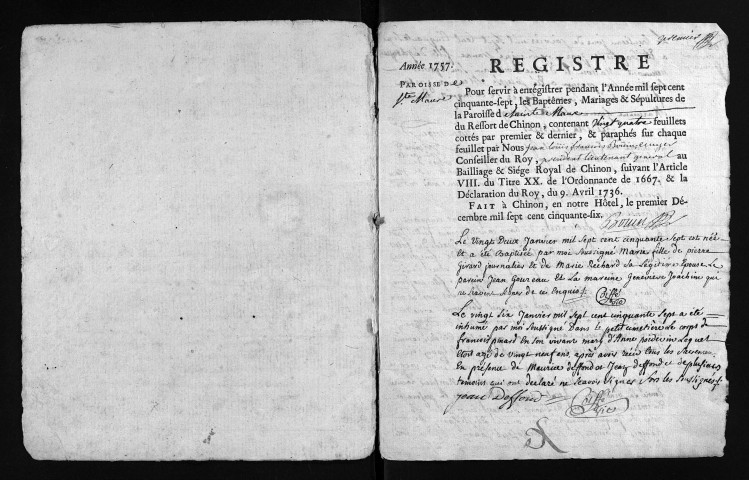 premier
Année 1757.
REGISTRE
PAROISSE De
Ste Maure
Pour servir à enrégistrer pendant l'Année mil sept cent
cinquante-sept, les Baptêmes, Mariages & Sépultures de
la Paroisse d sainte Maure
du Ressort de Chinon, contenant Vingt quatre feuillets
cottés par premier & dernier, & paraphés sur chaque
feuillet par Nous Jean Louis francois
Conseiller du Roy, president lieutenant general au
Bailliage & Siége Royal de Chinon, suivant l'Article
VIII. du Titre XX. de l'Ordonnance de 1667. & la
Déclaration du Roy, du 9. Avril 1736.
FAIT à Chinon, en notre Hôtel, le premier Dé-
cembre mil sept cent cinquante-six.
Le Vingt Deux Janvier mil Sept cent cinquante Sept est née
et a ete Baptisée par moi Soussigné Marie fille de pierre
Girard journalier et de Marie Richard sa Legitime Epouse Le
parein Jean Goureau et La mareine Genevieve Joachim qui
ne scavent signer de ce Enquis
Le vingt Six Janvier mil Sept cent cinquante Sept a eté
inhumé par moi soussigné Dans le petit cimetière Le corps de
francois pinard En son vivant mary d'Anne poidevin Lequel
Etoit agé de vingt neuf ans, après avoir reçu tous les Sacremens
En presence de Maurice deffond et Jean deffond et de plusieurs
temoins qui ont declaré ne Scavoir Signer Fors les Soussignés
jean Deffond